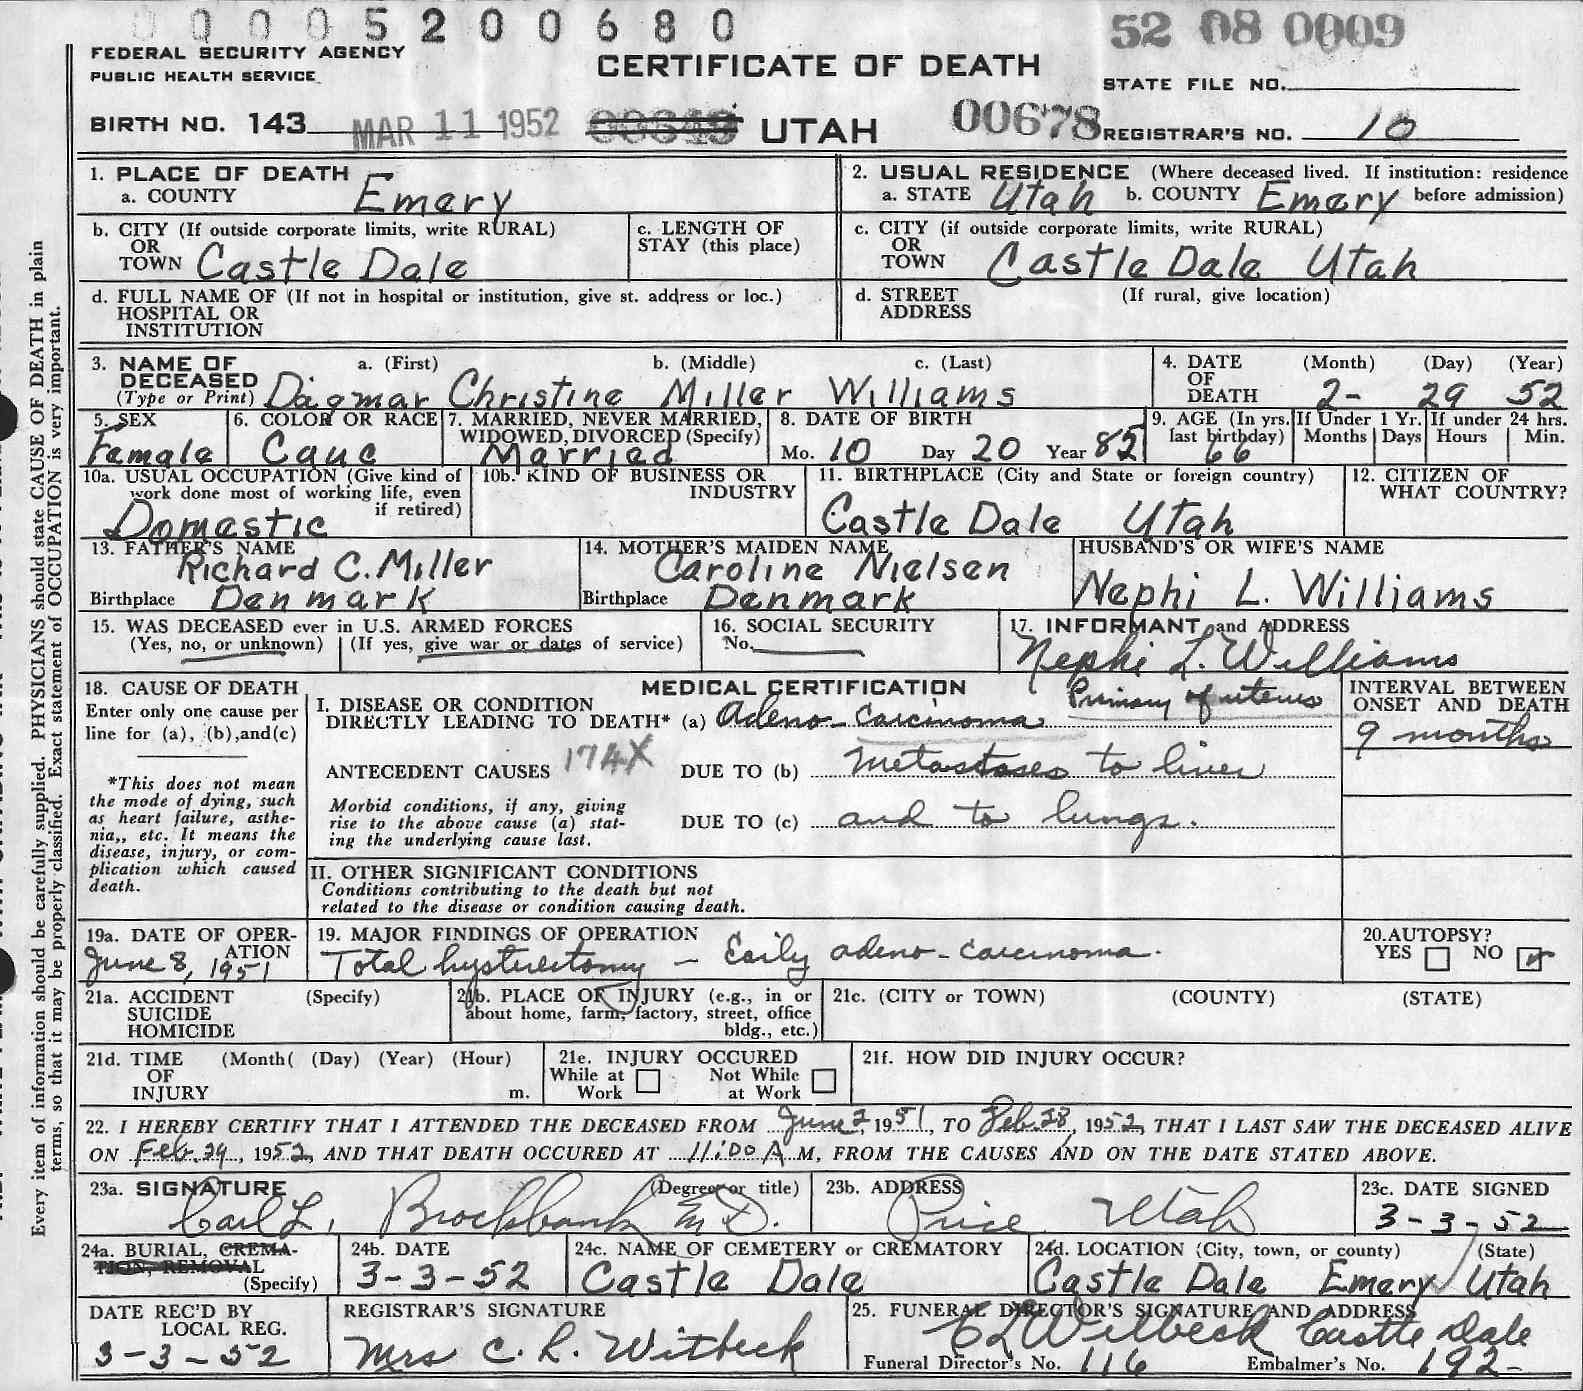 0 0 0 0 5 2 0 0 6 8 0
52 08 0009
FEDERAL SECURITY AGENCY
PUBLIC HEALTH SERVICE
CERTIFICATE OF DEATH
STATE FILE NO.
BIRTH NO. 143 MAR 11 1952 UTAH 00678 REGISTRAR'S NO. 10
Every item of information should be carefully supplied. PHYSICIANS should state CAUSE OF DEATH in plain
terms, so that it may be properly classified. Exact statement of OCCUPATION is very important.
1. PLACE OF DEATH
a. COUNTY Emery
2. USUAL RESIDENCE (Where deceased lived. If institution: residence
a. STATE Utah b. COUNTY Emery before admission)
b. CITY (If outside corporate limits, write RURAL)
OR
TOWN Castle Dale
c. LENGTH OF
STAY (this place)
c. CITY (if outside corporate limits, write RURAL)
OR
TOWN Castle Dale Utah
d. FULL NAME OF (If not in hospital or institution, give st. address or loc.)
HOSPITAL OR
INSTITUTION
d. STREET (If rural, give location)
ADDRESS
3. NAME OF a. (First) b. (Middle) c. (Last)
DECEASED
(Type or Print) Dagmar Christine Miller Williams
4. DATE (Month) (Day) (Year)
OF
DEATH 2- 29 52
5. SEX
Female
6. COLOR OR RACE
Cauc
7. MARRIED, NEVER MARRIED,
WIDOWED, DIVORCED (Specify)
Married
8. DATE OF BIRTH
Mo. 10 Day 20 Year 85
9. AGE (In yrs.
last birthday)
66
If Under 1 Yr.
Months Days
If under 24 hrs.
Hours Min.
10a. USUAL OCCUPATION (Give kind of
work done most of working life, even
if retired)
Domestic
10b. KIND OF BUSINESS OR
INDUSTRY
11. BIRTHPLACE (City and State or foreign country)
Castle Dale Utah
12. CITIZEN OF
WHAT COUNTRY?
13. FATHER'S NAME
Richard C. Miller
Birthplace Denmark
14. MOTHER'S MAIDEN NAME
Caroline Nielsen
Birthplace Denmark
HUSBAND'S OR WIFE'S NAME
Nephi L. Williams
15. WAS DECEASED ever in U.S. ARMED FORCES
(Yes, no, or unknown) (If yes, give war or dates of service)
16. SOCIAL SECURITY
No.
17. INFORMANT and ADDRESS
Nephi L. Williams
18. CAUSE OF DEATH
Enter only one cause per
line for (a), (b), and (c)
*This does not mean
the mode of dying, such
as heart failure, asthe-
nia,, etc. It means the
disease, injury, or com-
plication which caused
death.
MEDICAL CERTIFICATION
I. DISEASE OR CONDITION Primary of uterus
DIRECTLY LEADING TO DEATH* (a) Adeno-carcinoma
174X
ANTECEDENT CAUSES DUE TO (b) metastases to liver
Morbid conditions, if any, giving
rise to the above cause (a) stat-
ing the underlying cause last.
DUE TO (c) and to lungs.
INTERVAL BETWEEN
ONSET AND DEATH
9 months
II. OTHER SIGNIFICANT CONDITIONS
Conditions contributing to the death but not
related to the disease or condition causing death.
19a. DATE OF OPER-
ATION
June 8, 1951
19. MAJOR FINDINGS OF OPERATION
Total hysterectomy - Early adeno-carcinoma.
20. AUTOPSY?
YES NO
21a. ACCIDENT (Specify)
SUICIDE
HOMICIDE
21b. PLACE OF INJURY (e.g., in or
about home, farm, factory, street, office
bldg., etc.)
21c. (CITY or TOWN) (COUNTY) (STATE)
21d. TIME (Month( (Day) (Year) (Hour)
OF
INJURY m.
21e. INJURY OCCURED
While at Not While
Work at Work
21f. HOW DID INJURY OCCUR?
22. I HEREBY CERTIFY THAT I ATTENDED THE DECEASED FROM June 2, 1951, TO Feb. 28, 1952, THAT I LAST SAW THE DECEASED ALIVE
ON Feb. 29, 1952, AND THAT DEATH OCCURED AT 11:00 A M, FROM THE CAUSES AND ON THE DATE STATED ABOVE.
23a. SIGNATURE (Degree or title)
Carl L. Brockbank M.D.
23b. ADDRESS
Price Utah
23c. DATE SIGNED
3-3-52
24a. BURIAL, CREMA-
TION, REMOVAL
(Specify)
24b. DATE
3-3-52
24c. NAME OF CEMETERY or CREMATORY
Castle Dale
24d. LOCATION (City, town, or county) (State)
Castle Dale Emery Utah
DATE REC'D BY
LOCAL REG.
3-3-52
REGISTRAR'S SIGNATURE
Mrs C. L. Witbeck
25. FUNERAL DIRECTOR'S SIGNATURE AND ADDRESS
CL Witbeck Castle Dale
Funeral Director's No. 116 Embalmer's No. 192-